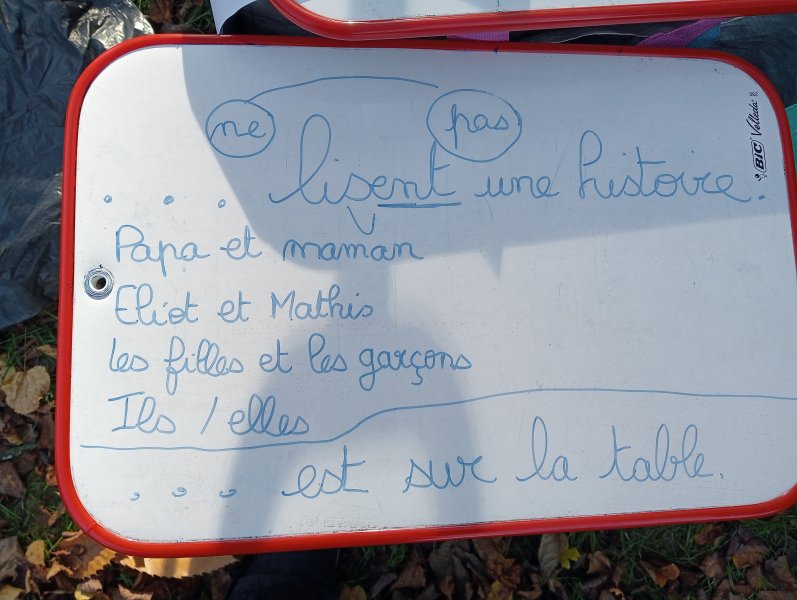 ne pas
. . . lisent une histoire.
V
Papa et maman
Eliot et Mathis
les filles et les garçons
Ils / elles
. . . est sur la table.
BIC Velleda